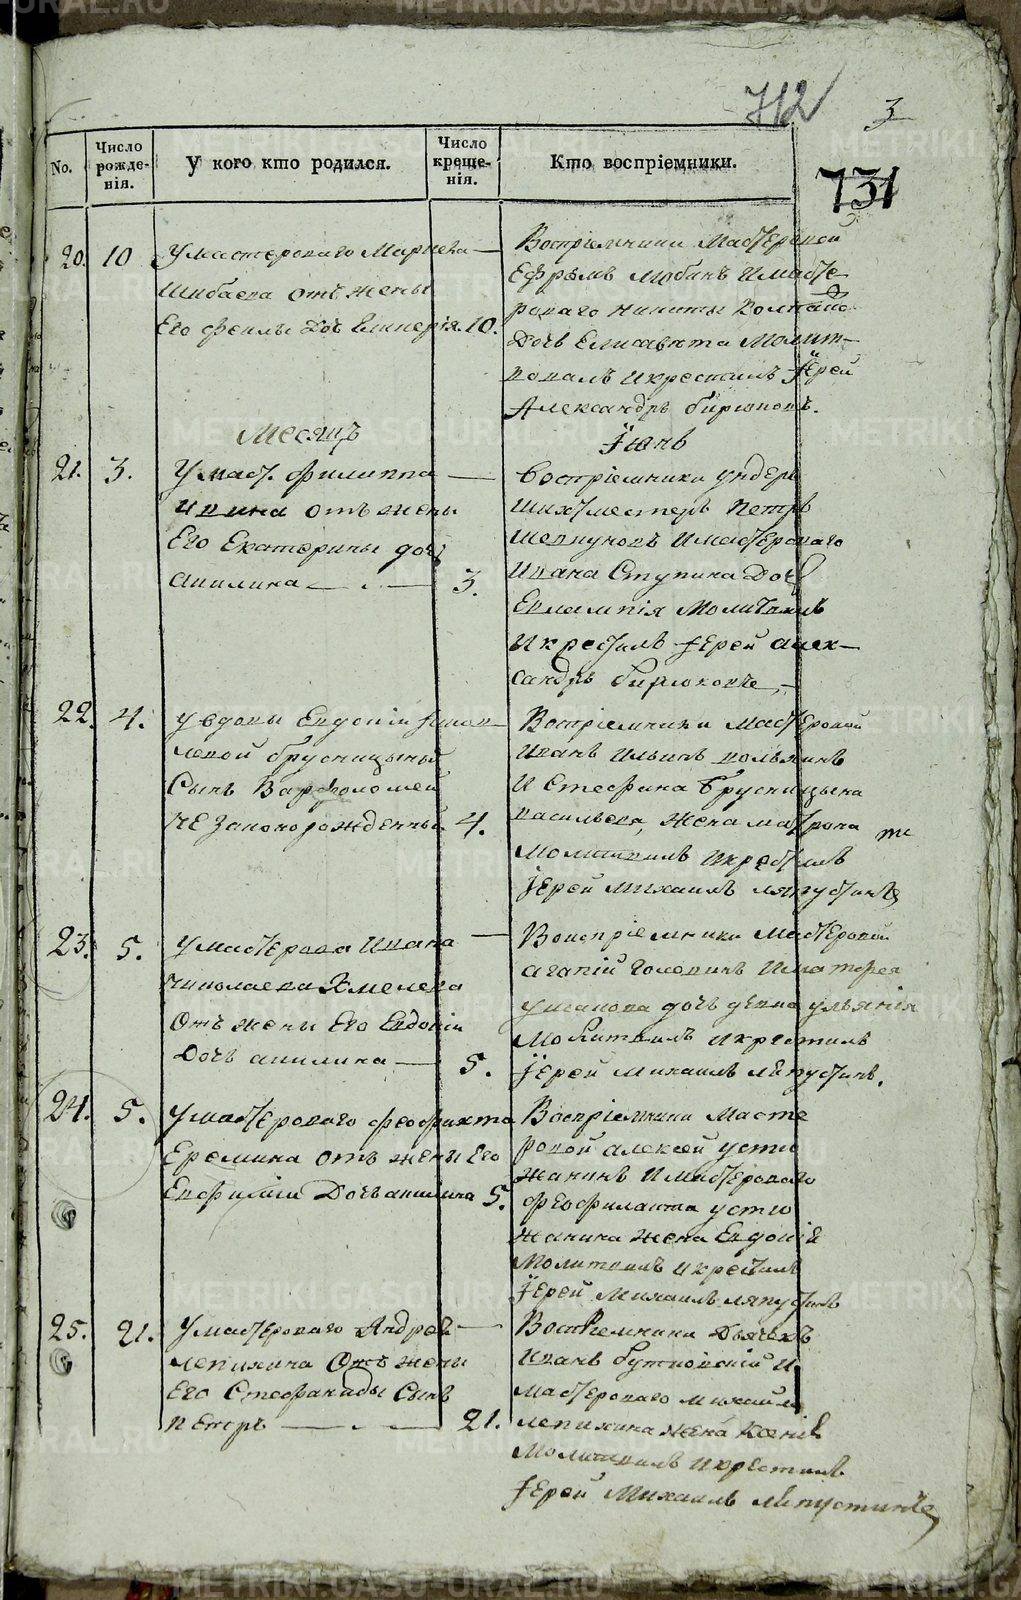 712
3
731
No.
Число рожде-нія.
У кого кто родился.
Число креще-нія.
Кто воспріемники.
20. 10
У мастероваго
Шибаева отъ жены
Его Феклы дочь 10.
Воспріемники Мастеровой
Ефремъ И масте
роваго Никиты
дочь Елисавета Молит-
вовалъ и крестилъ Іерей
Александръ Бирюковъ.
Месяцъ Іюнь
21. 3.
У маст. Филиппа
отъ жены
Его Екатерины дочь
Акилина 3.
Воспріемники ундеръ
Шихтместеръ Петръ
И мастероваго
Ивана Ступина дочь
Евлампія Молитвилъ
И крестилъ Іерей Алек-
сандръ Бирюковъ
22. 4.
У вдовы Евдокіи
левой Брусницыной
Сынъ Варфоломей
незаконорожденный 4.
Воспріемники Мастеровой
Иванъ Ильинъ
И Стефана Брусницына
Васильева, жена Матрона
Молитвилъ и крестилъ
Іерей Михаилъ Ляпустинъ
23. 5.
У мастерова Ивана
Николаева Хмелева
Отъ жены Его Евдокіи
Дочь акилина 5.
Воиспріемники Мастеровой
агапій Голевинъ И матфея
Ушакова дочь девка ульянія
Молитвилъ и крестилъ
Іерей Михаилъ Ляпустинъ.
24. 5.
У мастероваго
Еремина отъ жены Его
Евфиміи Дочь акилина 5.
Воспріемники Масте
ровой алексей устю
жанинъ И мастероваго
Феофилакта устю
жанина жена Евдокіе
Молитвилъ и крестилъ
Іерей Михаилъ Ляпустинъ
25. 21.
У мастероваго Андрея
Лепихина Отъ жены
Его Стефаниды Сынъ
Петръ 21.
Воспріемники Дьячекъ
Иванъ И
Мастероваго михайлы
Лепихина жена
Молитвилъ и крестилъ
Іерей Михаилъ Ляпустинъ
METRIKI.GASO-URAL.RU